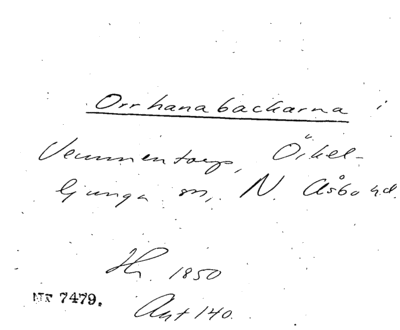 Orrhanabackarna i
Vemmentorp, Örkel-
ljunga sn, N. Åsbo hd.
1850
Nr 7479.
140